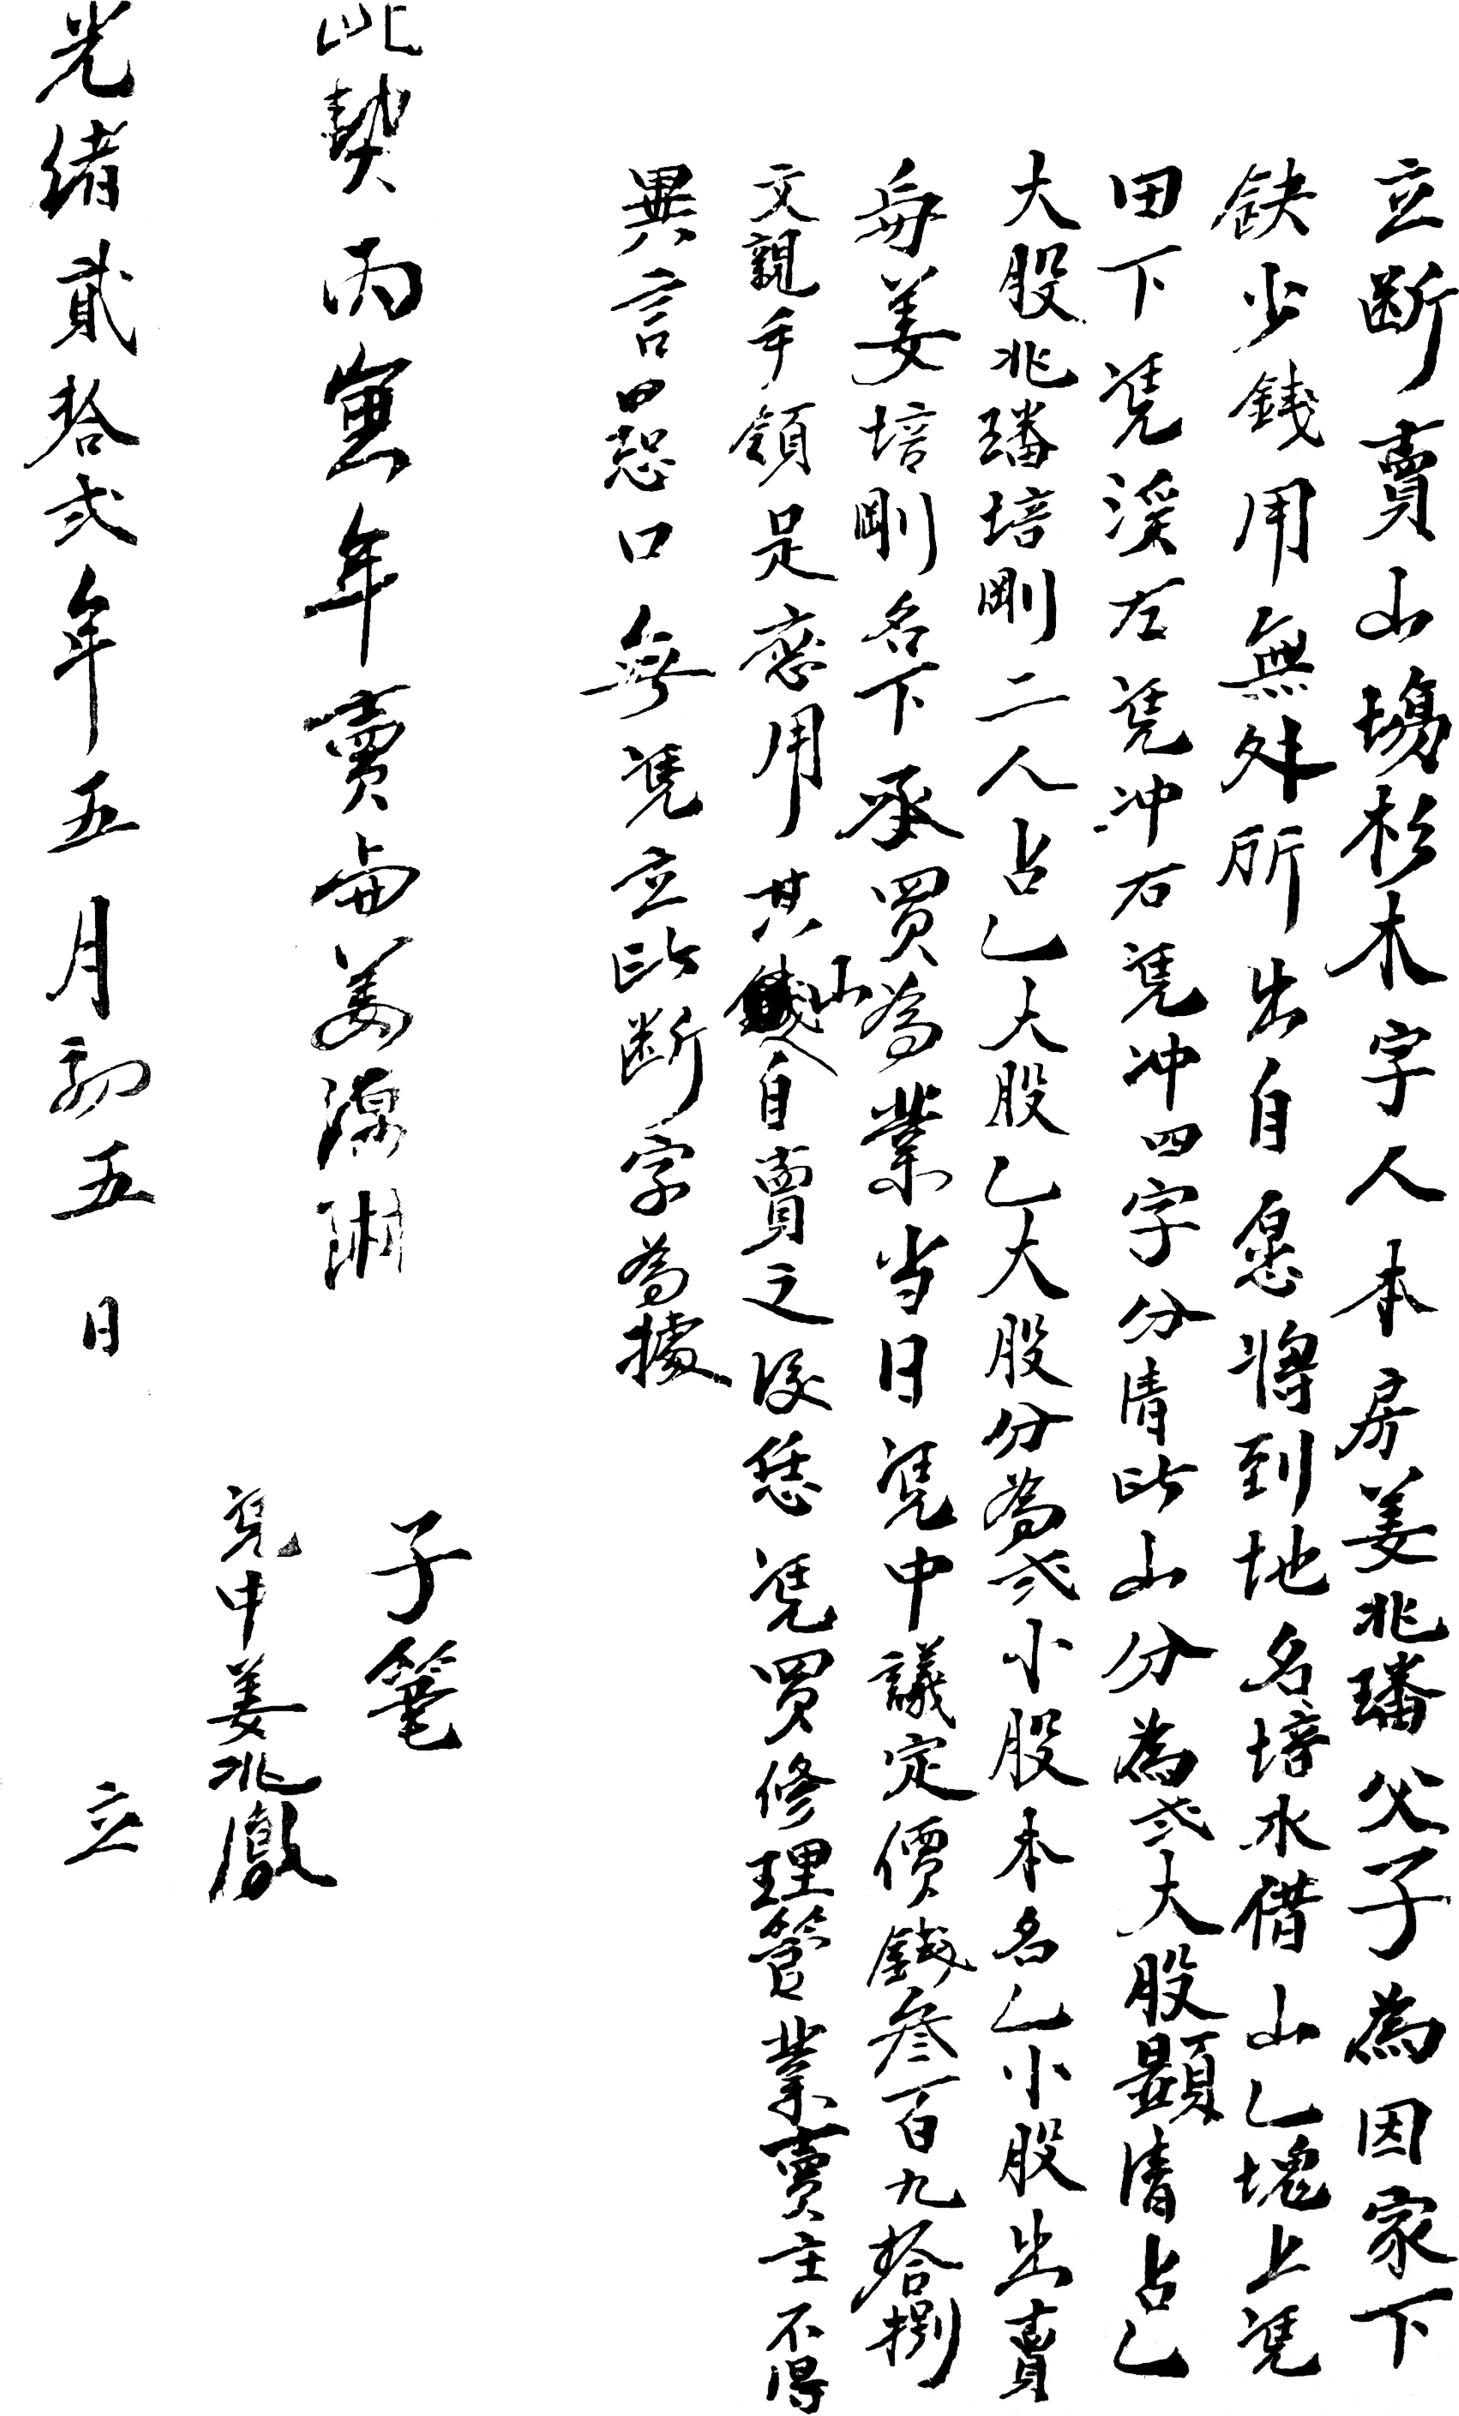 立断賣山場杉木字人本房姜兆璠父子為因家下
缺少錢用無外所出自愿將到地名培水借山乙塊上凴
田下凴溪左凴冲右凴冲四字分清此山分為弍大股顯清占乙
大股兆璠培剛二人占乙大股乙大股分為弍小股本名乙小股出賣
與姜培剛名下承買為業当日凴中議定價錢叁百九拾捌
文親手領足應用其山自賣之後恁凴買修理管業賣主不得
異言口恐口無凴立此断字為據
子筆
此契丙寅年賣與姜源淋
凴中姜兆鳳
光緒貳拾弍年五月初五日立